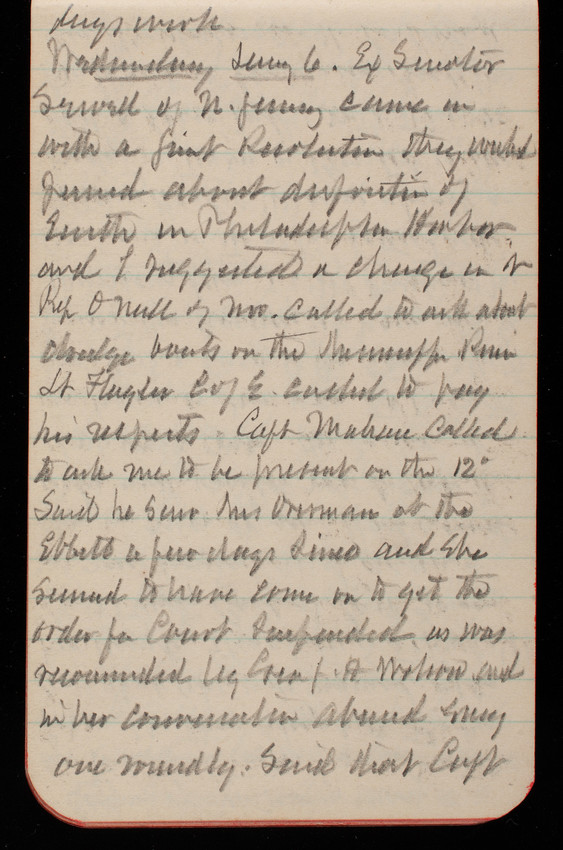 days work
Wednesday Jany 6. Ex Senator
Sewell of N. Jersey came in
with a Joint Resolution they wanted
passed about deposits of
Earth in Philadelphia Harbor
and I suggested a change in it
Rep O'Neill of Mo. called to ask about
dredge boats on the Mississippi River
Lt Flagler C of E. called to pay
his respects. Capt Mahan called
to ask me to be present on the 12"
Said he saw Mrs at the
Ebbett a few days since and She
seemed to have come on to get the
order for Court Suspended as was
recommended by and
in her conversation abused every
one roundly. Said that Capt